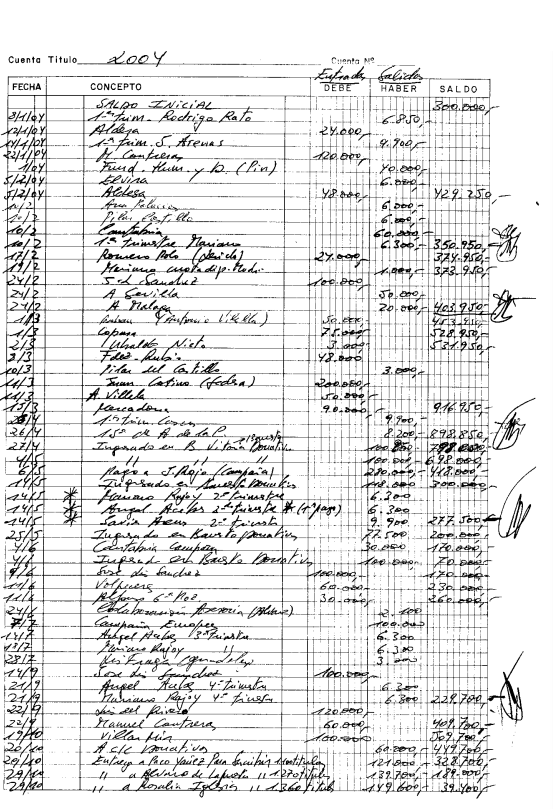 Cuenta Titulo 2004 Cuenta Nº
Entradas Salidas
FECHA CONCEPTO DEBE HABER SALDO
SALDO INICIAL 300.000,-
2/1/04 1er Trim. Rodrigo Rato 6.850,-
12/1/04 Aldesa 24.000,-
14/1/04 1er Trim. J. Arenas 9.900,-
22/1/04 M. Contreras 120.000,-
1/04 Fund. Hum. y D. (Pin) 40.000,-
5/2/04 Elvira 6.000,-
5/2/04 Aldesa 48.000,- 429.250,-
10/2 Ana Palacio 6.000,-
10/2 Pilar Castillo 6.000,-
10/2 Cantabria 60.000,-
10/2 1er Trimestre Mariano 6.300,- 350.950,-
17/2 Romero Polo 24.000,- 374.950,-
19/2 Mariano cuota dip. Madr. 1.000,- 373.950,-
24/2 J.L. Sanchez 100.000,-
24/2 A Sevilla 50.000,-
24/2 A Malaga 20.000,- 403.950,-
1/3 (Antonio Vilella) 50.000,- 453.950,-
1/3 Copasa 75.000,- 528.950,-
2/3 Ubaldo Nieto 3.000,- 531.950,-
8/3 Fdez. Rubio 48.000
10/3 Pilar del Castillo 3.000,-
11/3 Juan Cotino (Sedesa) 200.000,-
11/3 A. Vilela 50.000,-
15/3 Mercadona 90.000,- 916.950,-
1er Trim. Cascos 9.900,-
26/4 15º de A. de la P. 8.200,- 898.850,-
27/4 Ingresado en B. Vitoria Donativos 100.850,- 798.000,-
4/5 " " " 100.000,- 698.000,-
6/5 Pagos a J. Rojo (Campaña) 280.000,- 418.000,-
14/5 Ingresado en Bansto Donativos 118.000 300.000,-
14/5 * Mariano Rajoy 2º trimestre 6.300
14/5 * Angel Acebes 2º trimestre (1er pago) 6.300
14/5 * Javier Arenas 2º trimestre 9.900 277.500,-
25/5 Ingresado en Bansto Donativos 77.500 200.000,-
4/6 Cantabria Campaña 30.000 170.000,-
4/6 Ingresado en Bansto Donativos 100.000,- 70.000,-
9/6 Jose Luis Sanchez 100.000,- 170.000,-
11/6 Volpuceres 60.000,- 230.000,-
11/6 Alfonso Gª Poz. 30.000,- 260.000,-
24/6 Colaboracion Asesoria 2.100
7/7 Campaña Europeas 100.000,-
13/7 Angel Acebes 3º Trimestre 6.300
13/7 Mariano Rajoy " 6.300
28/7 Luis Fraga 3.000
14/9 Jose Luis Sanchez 100.000,-
21/9 Angel Acebes 4º trimestre 6.300
21/9 Mariano Rajoy 4º trimestre 6.300 229.700,-
22/9 Luis del Rivero 120.000,-
22/9 Manuel Contreras 60.000,- 409.700,-
19/10 Villar Mir 100.000,- 509.700,-
20/10 A c/c Donativos 60.000,- 449.700,-
29/10 Entrega a Paco Yañez Para Suscribir 1140 titulos 121.000,- 328.700,-
29/10 " a Alvaro de Lapuerta " 1320 titul. 139.700,- 189.000,-
29/10 " a Rosalia Iglesias " 1360 titulos 149.600,- 39.400,-